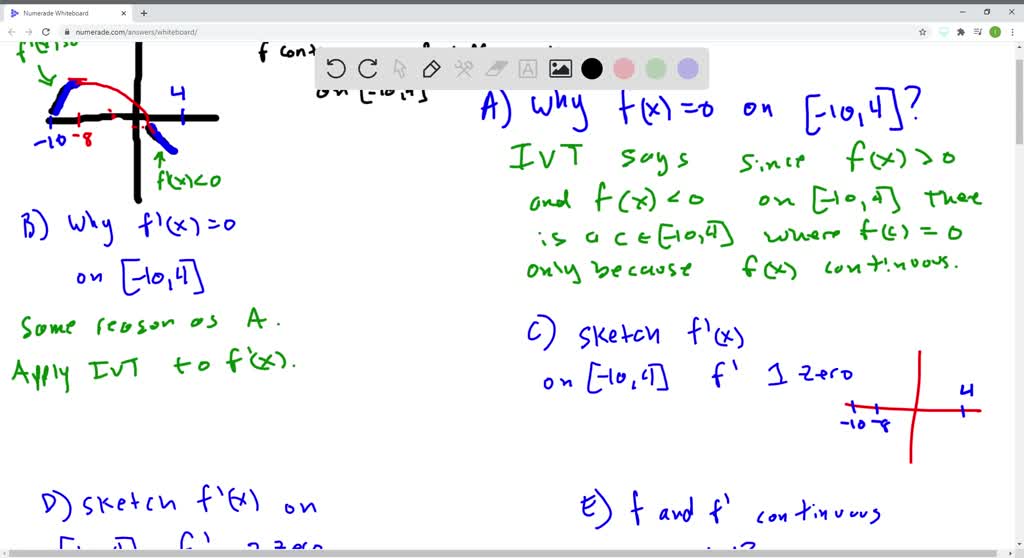 Numerade Whiteboard
numerade.com/answers/whiteboard/
f'(x)>0
f
on [-10,4]
4
-10 -8
f'(x)<0
A) Why f(x)=0 on [-10,4]?
IVT says since f(x)>0
and f(x)<0 on [-10,4] there
is a c∈[-10,4] where f(c)=0
only because f(x) continuous.
B) Why f'(x)=0
on [-10,4]
Same reason as A.
Apply IVT to f'(x).
C) sketch f'(x)
on [-10,4] f' 1 zero
4
-10 -8
D) sketch f'(x) on
E) f and f' continuous